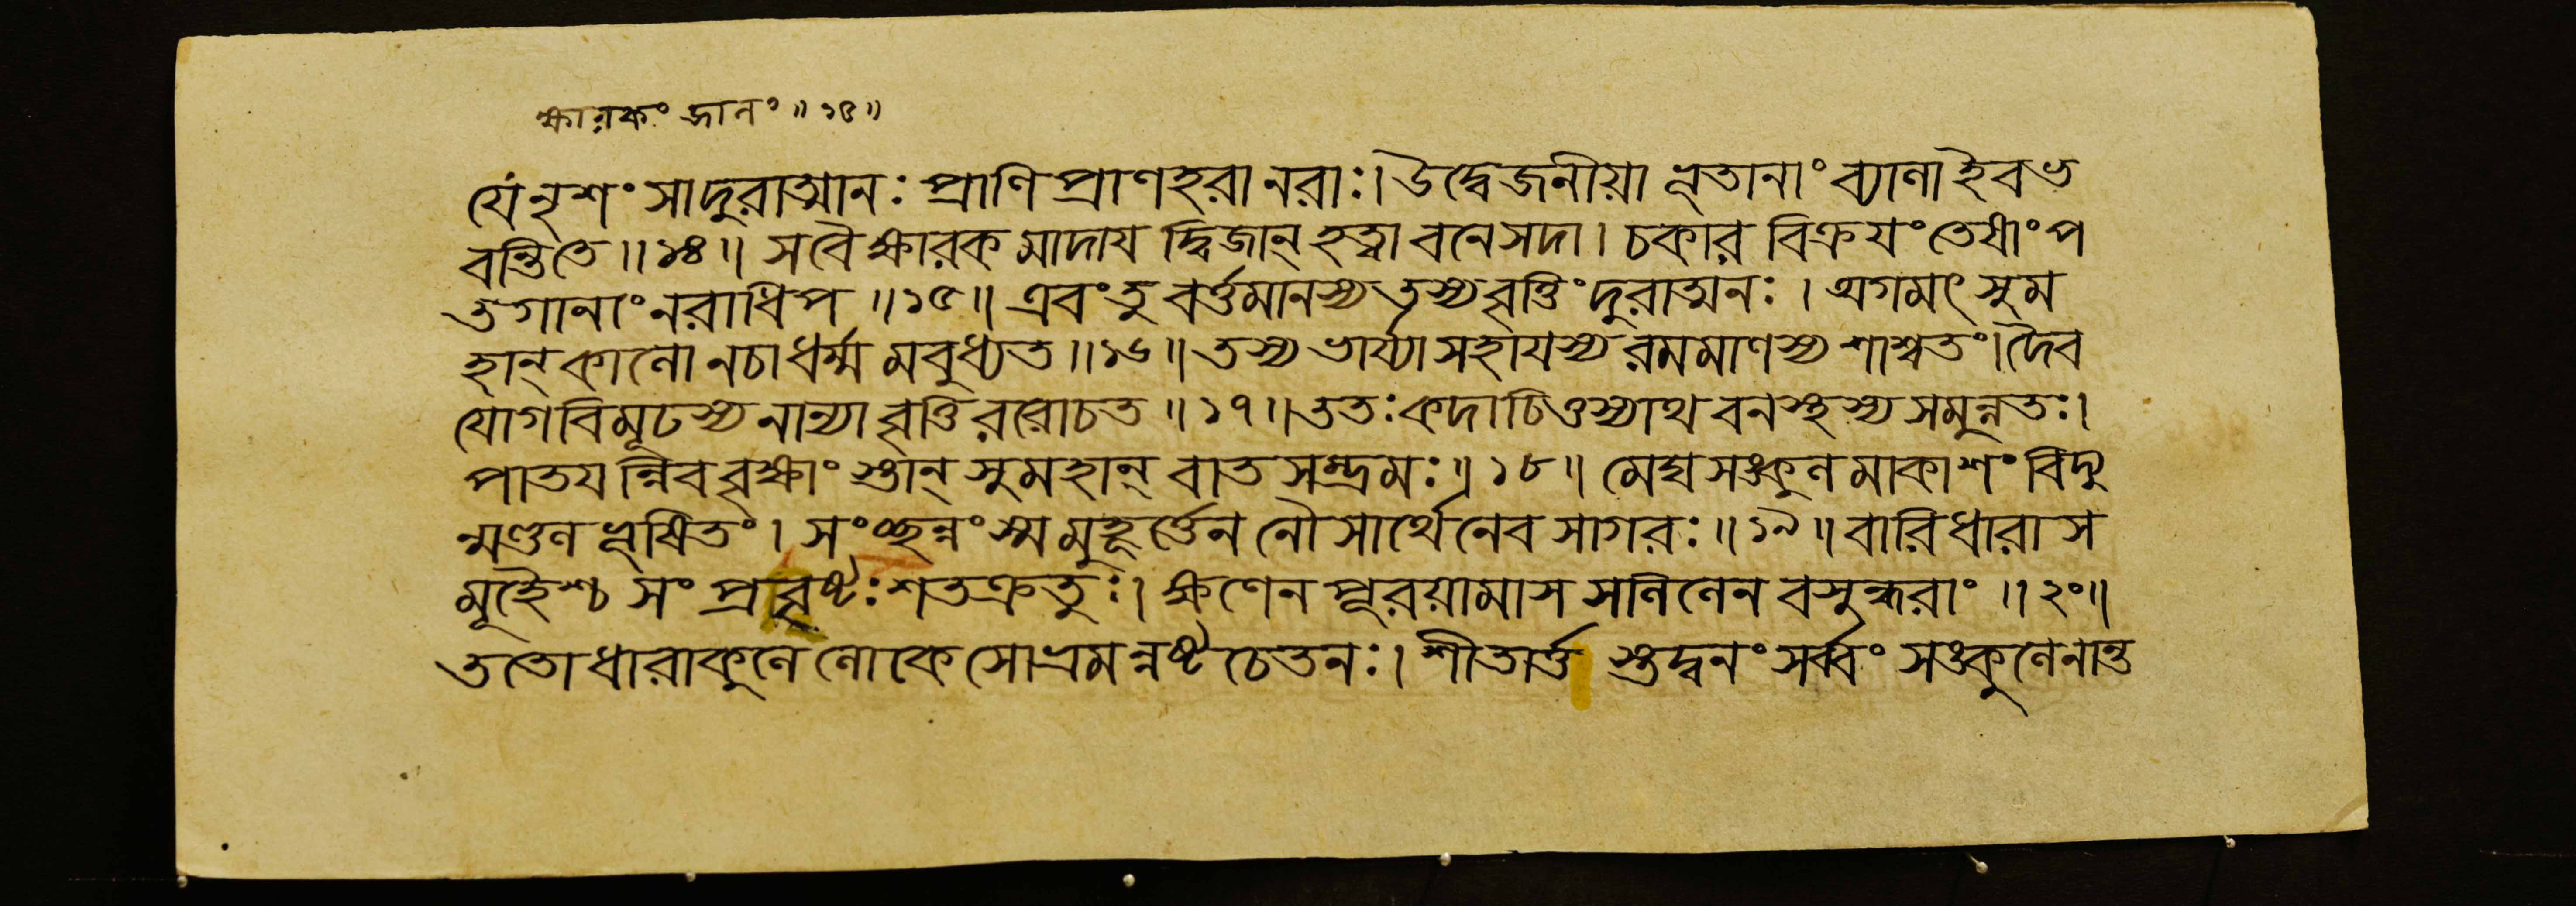 ক্ষারকং জালং॥১৫॥
যে নৃশংসা দুরাত্মানঃ প্রাণিপ্রাণহরা নরাঃ। উদ্বেজনীয়া ভূতানাং ব্যালা ইব ভ
বন্তি তে॥১৪॥ স বৈ ক্ষারকমাদায দ্বিজান্ হত্বা বনে সদা। চকার বিক্রযং তেষাং প
তগানাং নরাধিপ॥১৫॥ এবং তু বর্ত্তমানস্য তস্য বৃত্তিং দুরাত্মনঃ। অগমৎ সুম
হান্ কালো ন চাধর্ম্মমবুধ্যত॥১৬॥ তস্য ভার্য্যাসহাযস্য রমমাণস্য শাশ্বতং। দৈব
যোগবিমূঢস্য নান্যা বৃত্তিররোচত॥১৭॥ ততঃ কদাচিত্তস্যাথ বনস্থস্য সমুন্নতঃ।
পাতযন্নিব বৃক্ষাংস্তান্ সুমহান্ বাতসম্ভ্রমঃ॥১৮॥ মেঘসঙ্কুলমাকাশং বিদ্যু
ন্মণ্ডলভূষিতং। সংচ্ছন্নং স্ম মুহূর্ত্তেন নৌসার্থেনেব সাগরঃ॥১৯॥ বারিধারাস
মূহৈশ্চ সংপ্রবৃষ্টঃ শতক্রতুঃ। ক্ষণেন পূরয়ামাস সলিলেন বসুন্ধরাং॥২০॥
ততো ধারাকুলে লোকে সোভ্রমন্নষ্টচেতনঃ। শীতার্ত্ত স্তদ্বনং সর্ব্বং সঙ্কুলেনান্ত